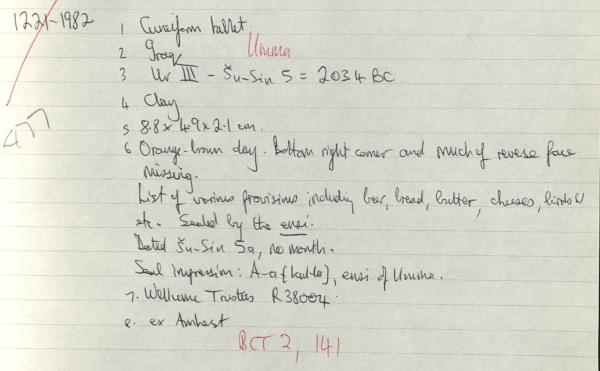 1221-1982
1 Cuneiform tablet
2 Iraq Umma
3 Ur III - Šu-Sin 5 = 2034 BC
477
4 Clay
5 8.8 x 4.9 x 2.1 cm.
6 Orange-brown clay. Bottom right corner and much of reverse face
missing.
List of various provisions including beer, bread, butter, cheeses,
etc. Sealed by the ensi.
Dated Šu-Sin 5a, no month.
Seal Impression: A-a[kal-la], ensi of Umma.
7. Wellcome Trustees R38004.
8. ex Amherst
BCT 2, 141